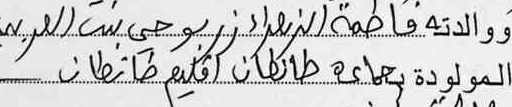 ووالدته فاطمة الزهراء زريوحي بنت العربي
المولودة بجماعة طانطان اقليم طانطان